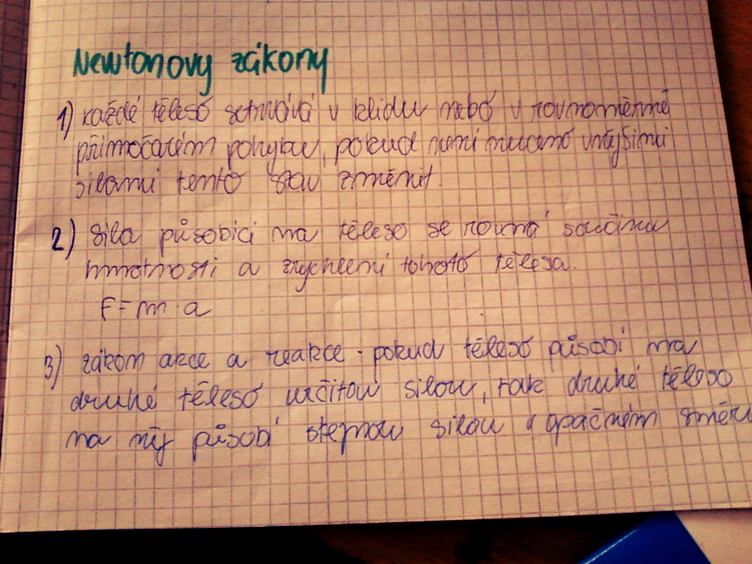 Newtonovy zákony
1) každé těleso setrvává v klidu nebo v rovnoměrně
přímočarém pohybu, pokud není nuceno vnějšími
silami tento stav změnit.
2) síla působící na těleso se rovná součinu
hmotnosti a zrychlení tohoto tělesa.
F = m · a
3) zákon akce a reakce · pokud těleso působí na
druhé těleso určitou silou, tak druhé těleso
na něj působí stejnou silou v opačném směru